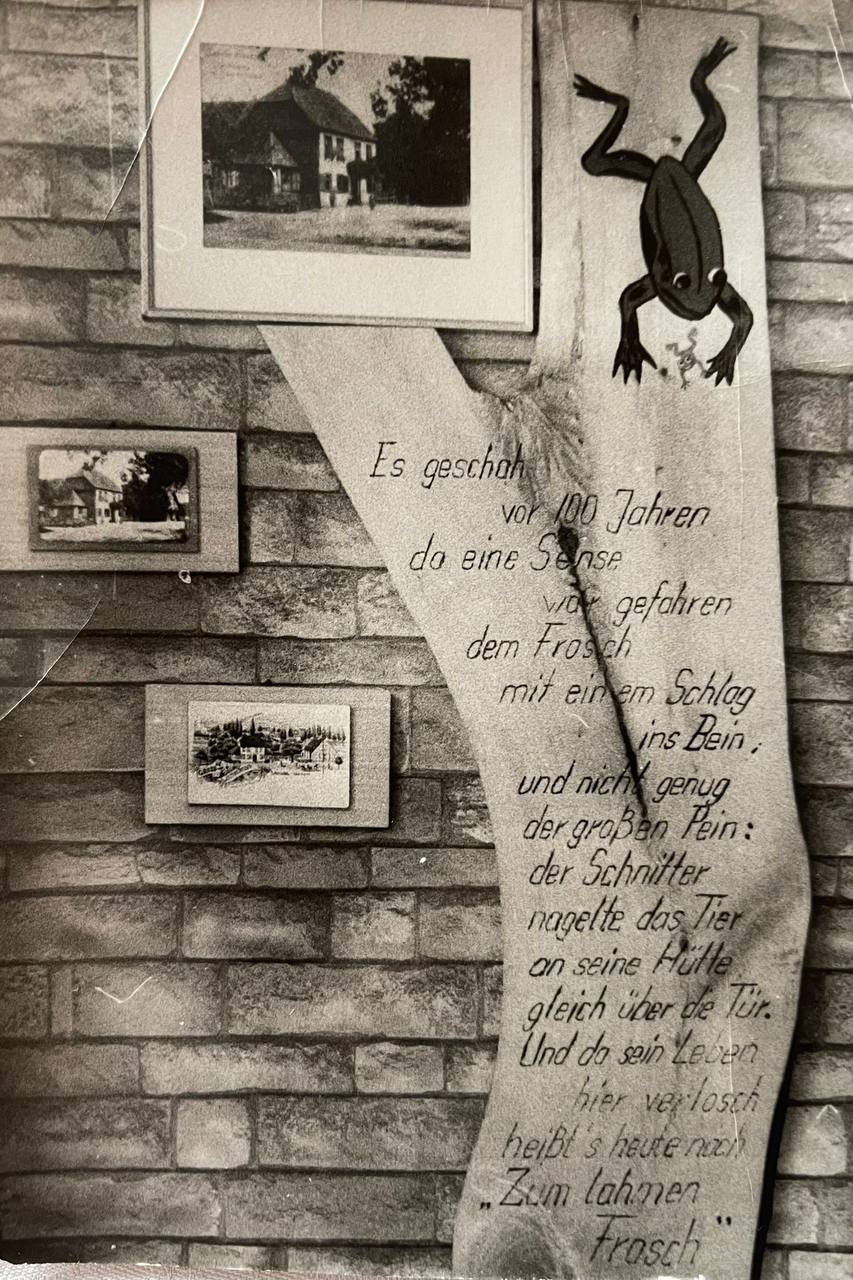 Es geschah
vor 100 Jahren
da eine Sense
war gefahren
dem Frosch
mit einem Schlag
ins Bein,
und nicht genug
der großen Pein:
der Schnitter
nagelte das Tier
an seine Hütte
gleich über die Tür.
Und da sein Leben
hier verlosch
heißt's heute noch
„Zum lahmen
Frosch"